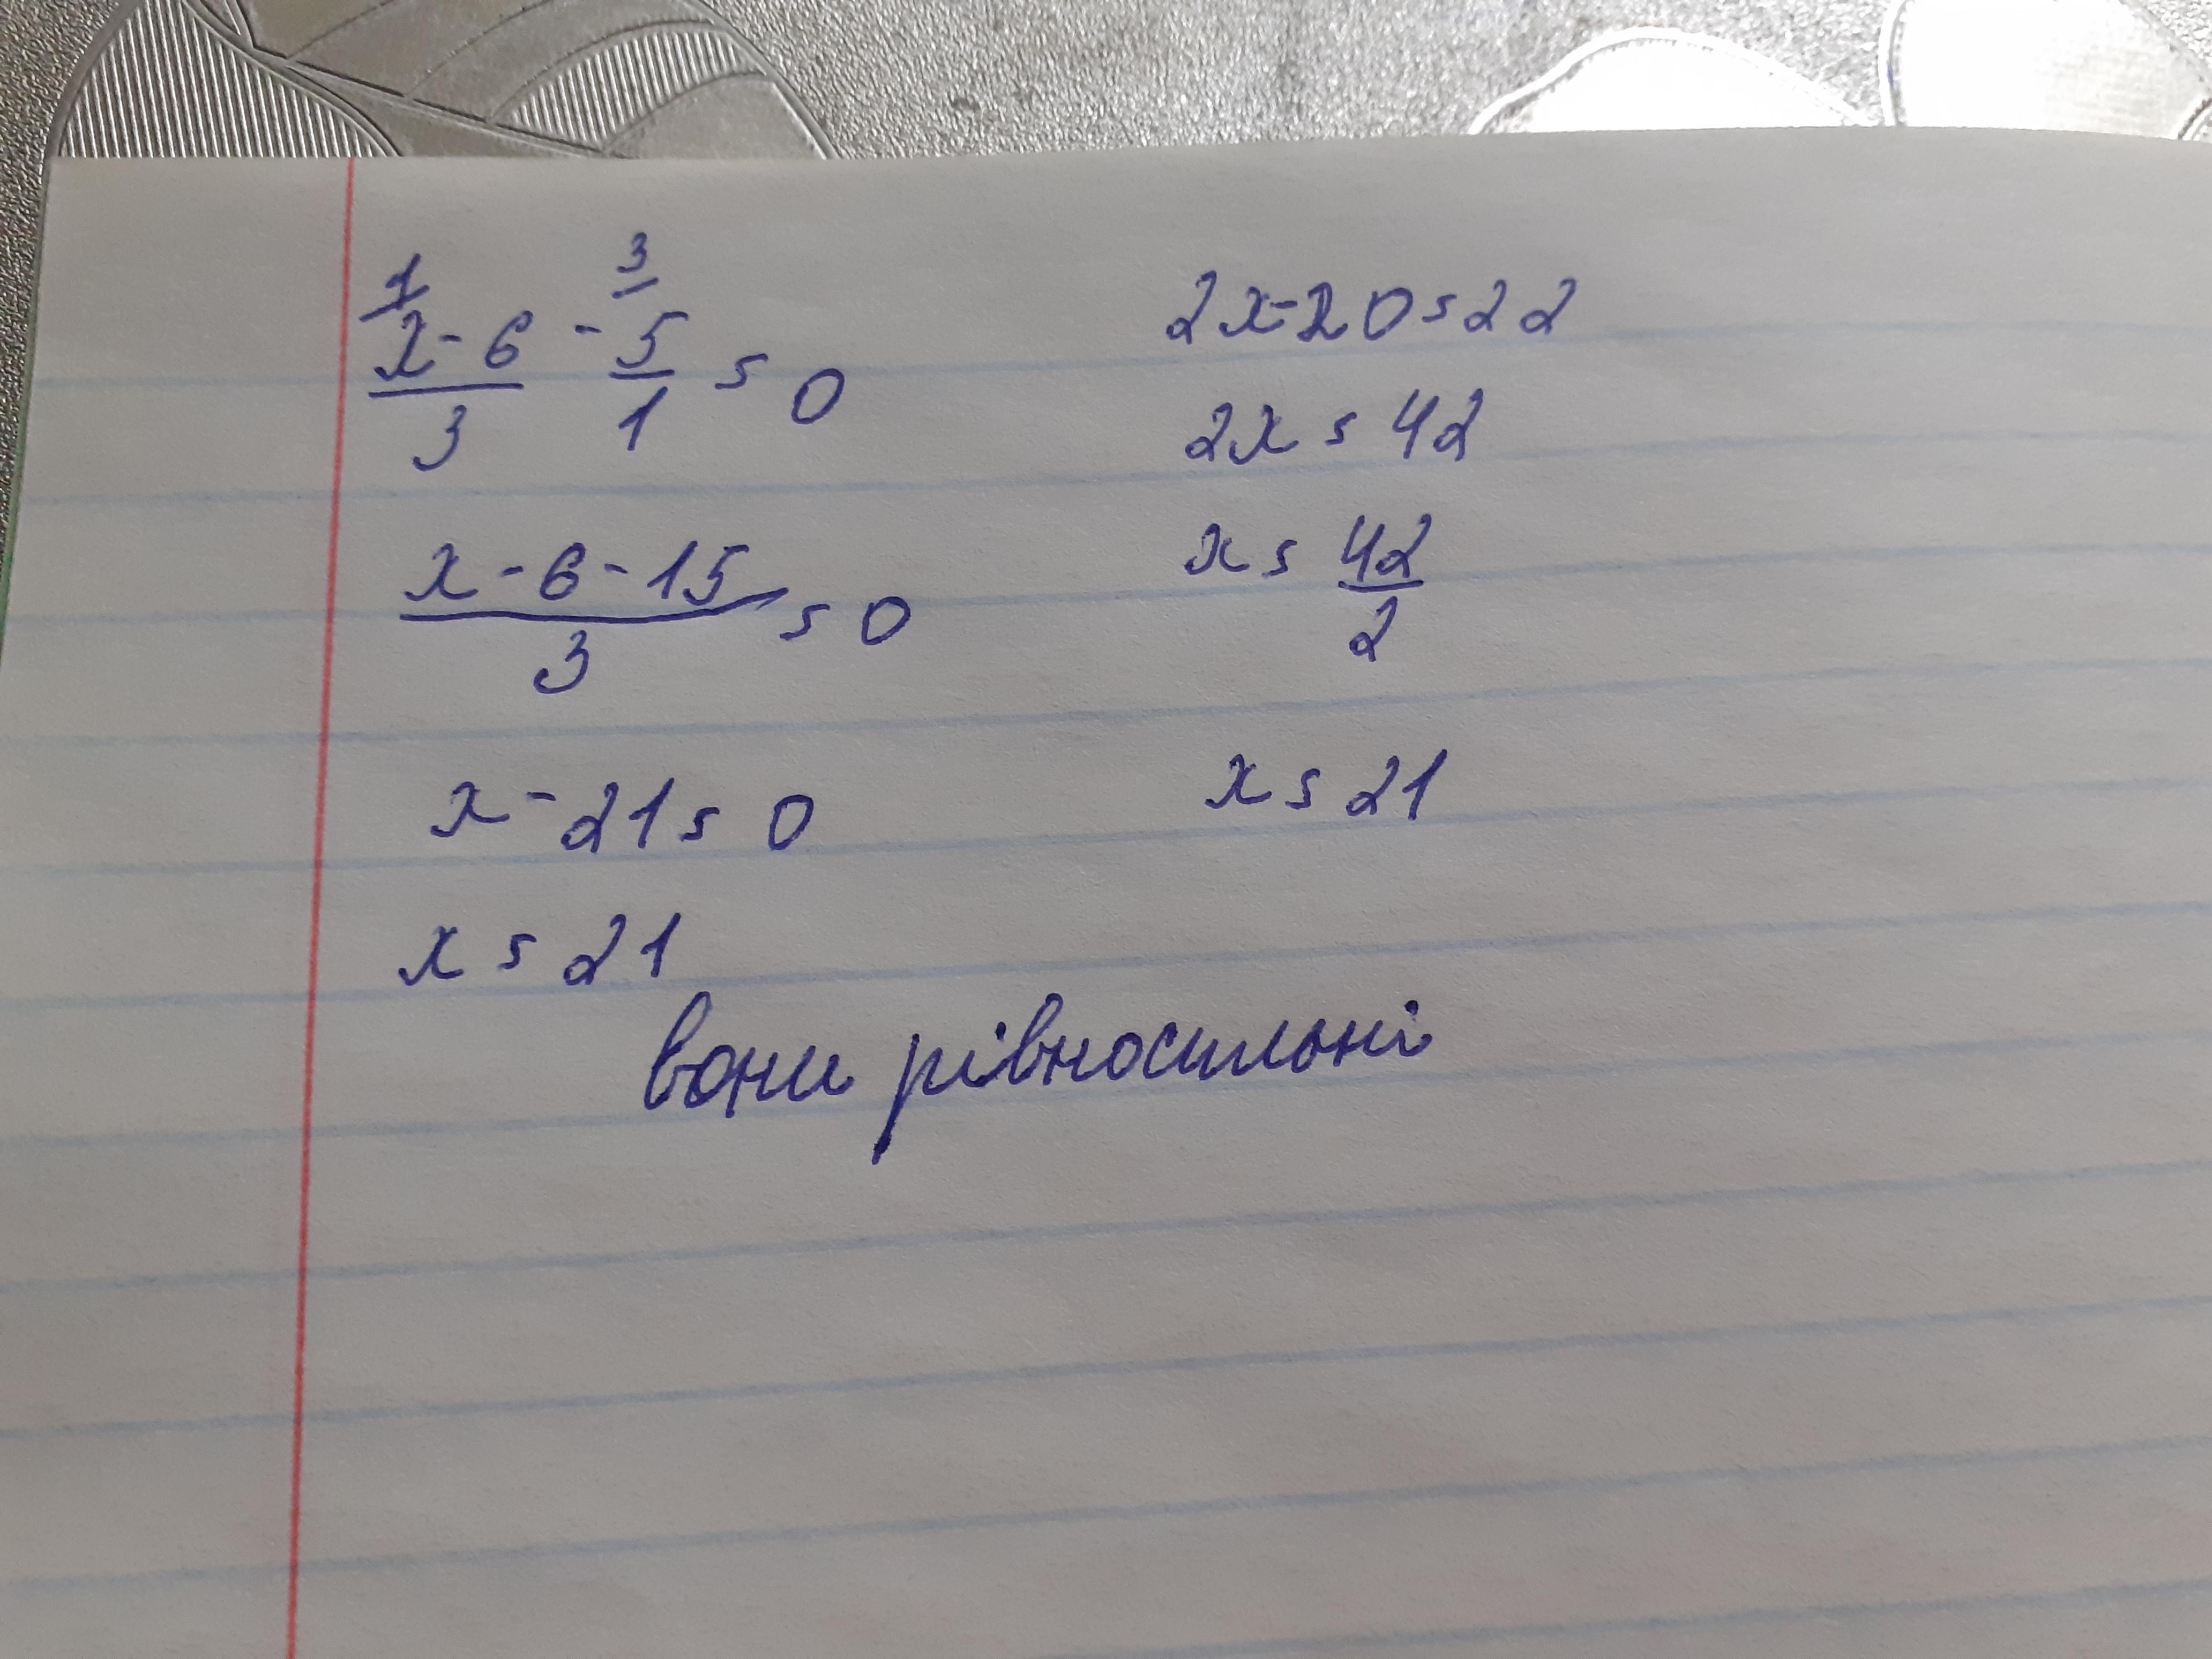 1 3
x-6/3 - 5/1 = 0
x-6-15/3 = 0
x-21=0
x=21
2x-20=22
2x=42
x=42/2
x=21
вони рівносильні